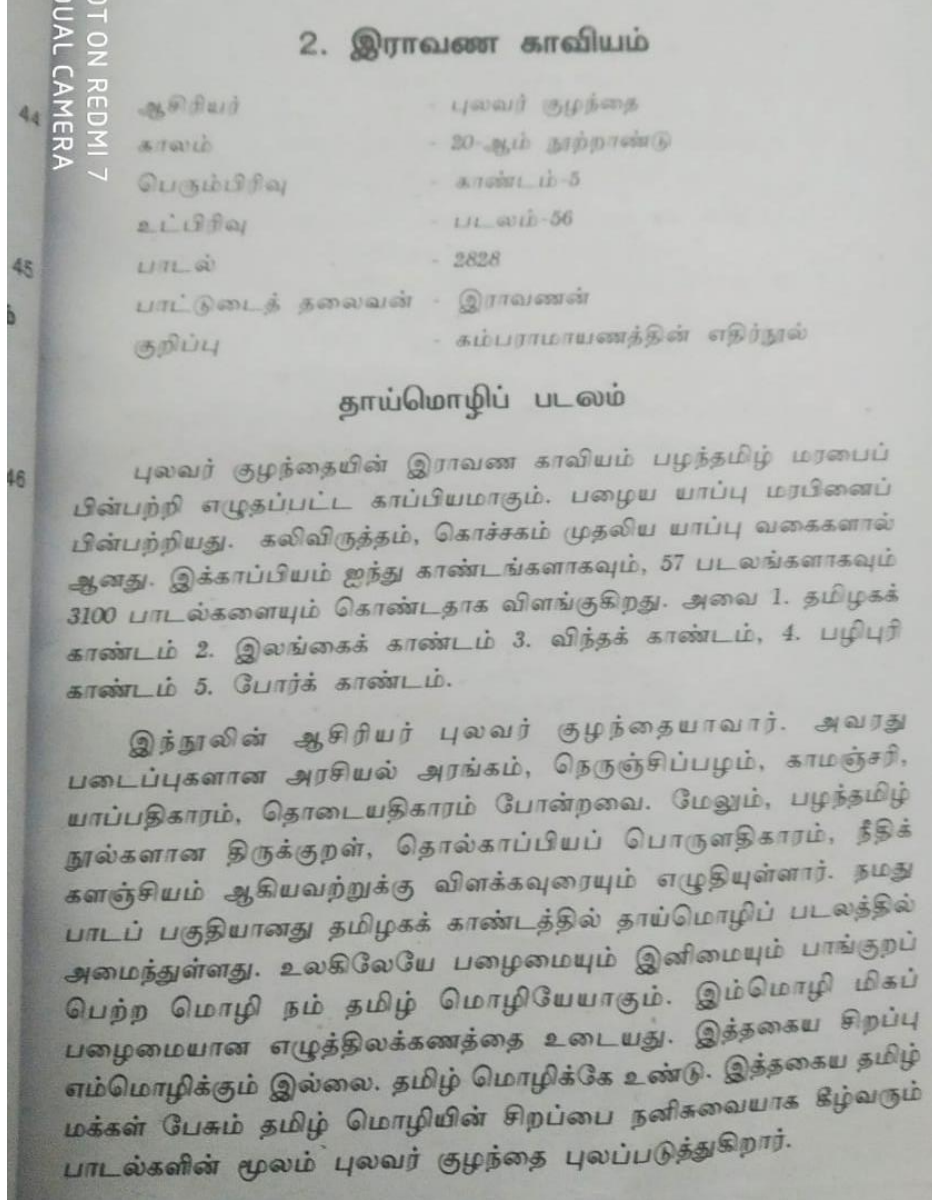 OT ON REDMI 7
UAL CAMERA
2. இராவண காவியம்
44
ஆசிரியர் - புலவர் குழந்தை
காலம் - 20-ஆம் நூற்றாண்டு
பெரும்பிரிவு - காண்டம்-5
உட்பிரிவு - படலம்-56
45
பாடல் - 2828
பாட்டுடைத் தலைவன் - இராவணன்
குறிப்பு - கம்பராமாயணத்தின் எதிர்நூல்
தாய்மொழிப் படலம்
46
புலவர் குழந்தையின் இராவண காவியம் பழந்தமிழ் மரபைப்
பின்பற்றி எழுதப்பட்ட காப்பியமாகும். பழைய யாப்பு மரபினைப்
பின்பற்றியது. கலிவிருத்தம், கொச்சகம் முதலிய யாப்பு வகைகளால்
ஆனது. இக்காப்பியம் ஐந்து காண்டங்களாகவும், 57 படலங்களாகவும்
3100 பாடல்களையும் கொண்டதாக விளங்குகிறது. அவை 1. தமிழகக்
காண்டம் 2. இலங்கைக் காண்டம் 3. விந்தக் காண்டம், 4. பழிபுரி
காண்டம் 5. போர்க் காண்டம்.
இந்நூலின் ஆசிரியர் புலவர் குழந்தையாவார். அவரது
படைப்புகளான அரசியல் அரங்கம், நெருஞ்சிப்பழம், காமஞ்சரி,
யாப்பதிகாரம், தொடையதிகாரம் போன்றவை. மேலும், பழந்தமிழ்
நூல்களான திருக்குறள், தொல்காப்பியப் பொருளதிகாரம், நீதிக்
களஞ்சியம் ஆகியவற்றுக்கு விளக்கவுரையும் எழுதியுள்ளார். நமது
பாடப் பகுதியானது தமிழகக் காண்டத்தில் தாய்மொழிப் படலத்தில்
அமைந்துள்ளது. உலகிலேயே பழைமையும் இனிமையும் பாங்குறப்
பெற்ற மொழி நம் தமிழ் மொழியேயாகும். இம்மொழி மிகப்
பழைமையான எழுத்திலக்கணத்தை உடையது. இத்தகைய சிறப்பு
எம்மொழிக்கும் இல்லை. தமிழ் மொழிக்கே உண்டு. இத்தகைய தமிழ்
மக்கள் பேசும் தமிழ் மொழியின் சிறப்பை நனிசுவையாக கீழ்வரும்
பாடல்களின் மூலம் புலவர் குழந்தை புலப்படுத்துகிறார்.